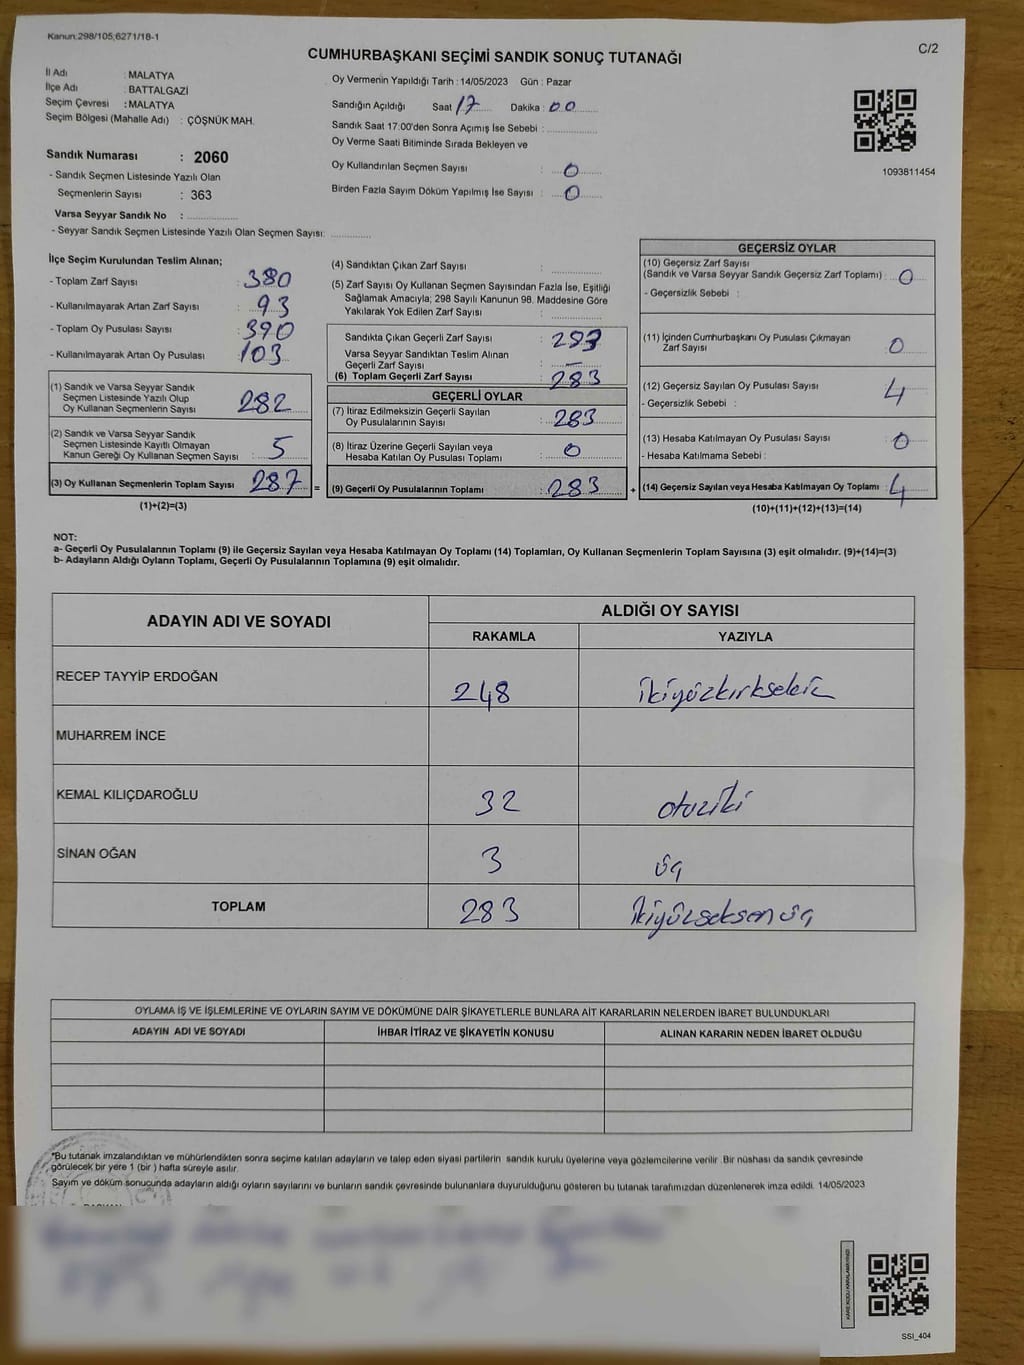 Kanun:298/105;6271/18-1
C/2
CUMHURBAŞKANI SEÇİMİ SANDIK SONUÇ TUTANAĞI
İl Adı : MALATYA
İlçe Adı : BATTALGAZİ
Seçim Çevresi : MALATYA
Seçim Bölgesi (Mahalle Adı) : ÇÖŞNÜK MAH.
Sandık Numarası : 2060
- Sandık Seçmen Listesinde Yazılı Olan
Seçmenlerin Sayısı : 363
Varsa Seyyar Sandık No :
- Seyyar Sandık Seçmen Listesinde Yazılı Olan Seçmen Sayısı:
Oy Vermenin Yapıldığı Tarih : 14/05/2023 Gün : Pazar
Sandığın Açıldığı Saat : 17 Dakika : 00
Sandık Saat 17:00'den Sonra Açımış İse Sebebi :
Oy Verme Saati Bitiminde Sırada Bekleyen ve
Oy Kullandırılan Seçmen Sayısı : 0
Birden Fazla Sayım Döküm Yapılmış İse Sayısı : 0
1093811454
İlçe Seçim Kurulundan Teslim Alınan;
- Toplam Zarf Sayısı : 380
- Kullanılmayarak Artan Zarf Sayısı : 93
- Toplam Oy Pusulası Sayısı : 390
- Kullanılmayarak Artan Oy Pusulası : 103
(1) Sandık ve Varsa Seyyar Sandık
Seçmen Listesinde Yazılı Olup
Oy Kullanan Seçmenlerin Sayısı : 282
(2) Sandık ve Varsa Seyyar Sandık
Seçmen Listesinde Kayıtlı Olmayan
Kanun Gereği Oy Kullanan Seçmen Sayısı : 5
(3) Oy Kullanan Seçmenlerin Toplam Sayısı : 287 =
(1)+(2)=(3)
(4) Sandıktan Çıkan Zarf Sayısı :
(5) Zarf Sayısı Oy Kullanan Seçmen Sayısından Fazla İse, Eşitliği
Sağlamak Amacıyla; 298 Sayılı Kanunun 98. Maddesine Göre
Yakılarak Yok Edilen Zarf Sayısı :
Sandıkta Çıkan Geçerli Zarf Sayısı : 283
Varsa Seyyar Sandıktan Teslim Alınan
Geçerli Zarf Sayısı : —
(6) Toplam Geçerli Zarf Sayısı : 283
GEÇERLİ OYLAR
(7) İtiraz Edilmeksizin Geçerli Sayılan
Oy Pusulalarının Sayısı : 283
(8) İtiraz Üzerine Geçerli Sayılan veya
Hesaba Katılan Oy Pusulası Toplamı : 0
(9) Geçerli Oy Pusulalarının Toplamı : 283 +
GEÇERSİZ OYLAR
(10) Geçersiz Zarf Sayısı
(Sandık ve Varsa Seyyar Sandık Geçersiz Zarf Toplamı) : 0
- Geçersizlik Sebebi :
(11) İçinden Cumhurbaşkanı Oy Pusulası Çıkmayan
Zarf Sayısı : 0
(12) Geçersiz Sayılan Oy Pusulası Sayısı : 4
- Geçersizlik Sebebi :
(13) Hesaba Katılmayan Oy Pusulası Sayısı : 0
- Hesaba Katılmama Sebebi :
(14) Geçersiz Sayılan veya Hesaba Katılmayan Oy Toplamı : 4
(10)+(11)+(12)+(13)=(14)
NOT:
a- Geçerli Oy Pusulalarının Toplamı (9) ile Geçersiz Sayılan veya Hesaba Katılmayan Oy Toplamı (14) Toplamları, Oy Kullanan Seçmenlerin Toplam Sayısına (3) eşit olmalıdır. (9)+(14)=(3)
b- Adayların Aldığı Oyların Toplamı, Geçerli Oy Pusulalarının Toplamına (9) eşit olmalıdır.
ADAYIN ADI VE SOYADI ALDIĞI OY SAYISI
RAKAMLA YAZIYLA
RECEP TAYYİP ERDOĞAN 248 ikiyüzkırksekiz
MUHARREM İNCE
KEMAL KILIÇDAROĞLU 32 otuziki
SİNAN OĞAN 3 üç
TOPLAM 283 ikiyüzseksen üç
OYLAMA İŞ VE İŞLEMLERİNE VE OYLARIN SAYIM VE DÖKÜMÜNE DAİR ŞİKAYETLERLE BUNLARA AİT KARARLARIN NELERDEN İBARET BULUNDUKLARI
ADAYIN ADI VE SOYADI İHBAR İTİRAZ VE ŞİKAYETİN KONUSU ALINAN KARARIN NEDEN İBARET OLDUĞU
*Bu tutanak imzalandıktan ve mühürlendikten sonra seçime katılan adayların ve talep eden siyasi partilerin sandık kurulu üyelerine veya gözlemcilerine verilir. Bir nüshası da sandık çevresinde
görülecek bir yere 1 (bir) hafta süreyle asılır.
Sayım ve döküm sonucunda adayların aldığı oyların sayılarını ve bunların sandık çevresinde bulunanlara duyurulduğunu gösteren bu tutanak tarafımızdan düzenlenerek imza edildi. 14/05/2023
SSİ_404